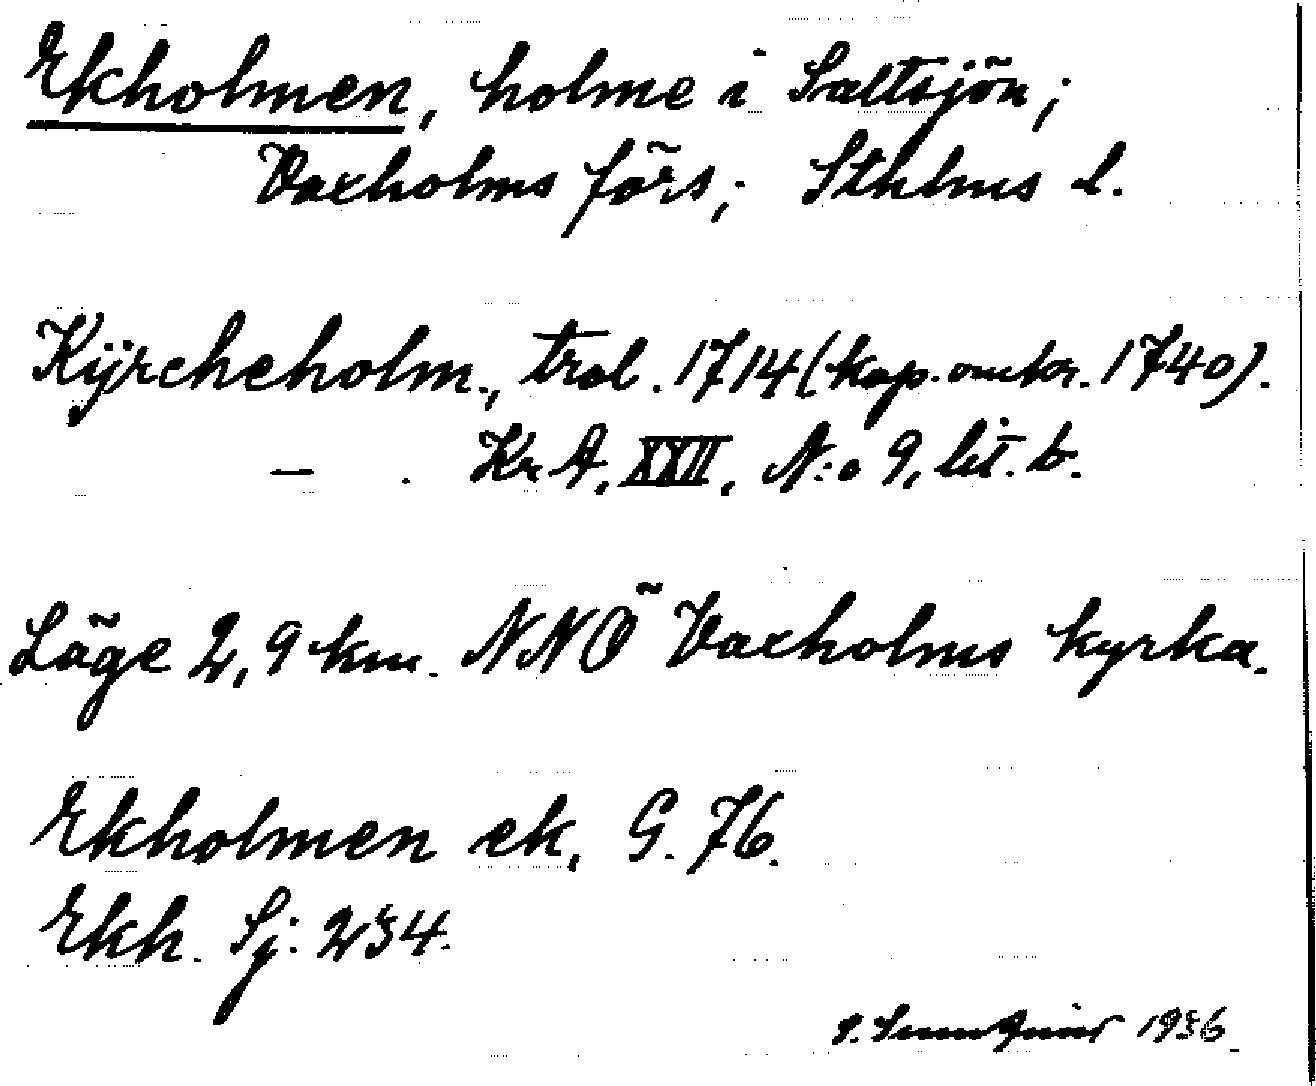 Ekholmen, holme i Saltsjön;
Vaxholms förs; Sthlms l.
Kÿrcheholm., trol. 1714 (kop. omkr. 1740).
— . Kr A, XXII, N:o 9, lit. b.
Läge 2,9 km. NNÖ Vaxholms kyrka.
Ekholmen ek, G. 76.
Ekh. Sj: 234.
1936